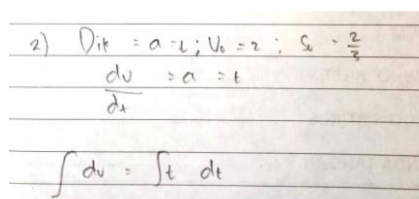 2) Dik = a = t ; V₀ = 2 ; S₀ = 2/3
dv/dt = a = t
∫ dv = ∫ t dt